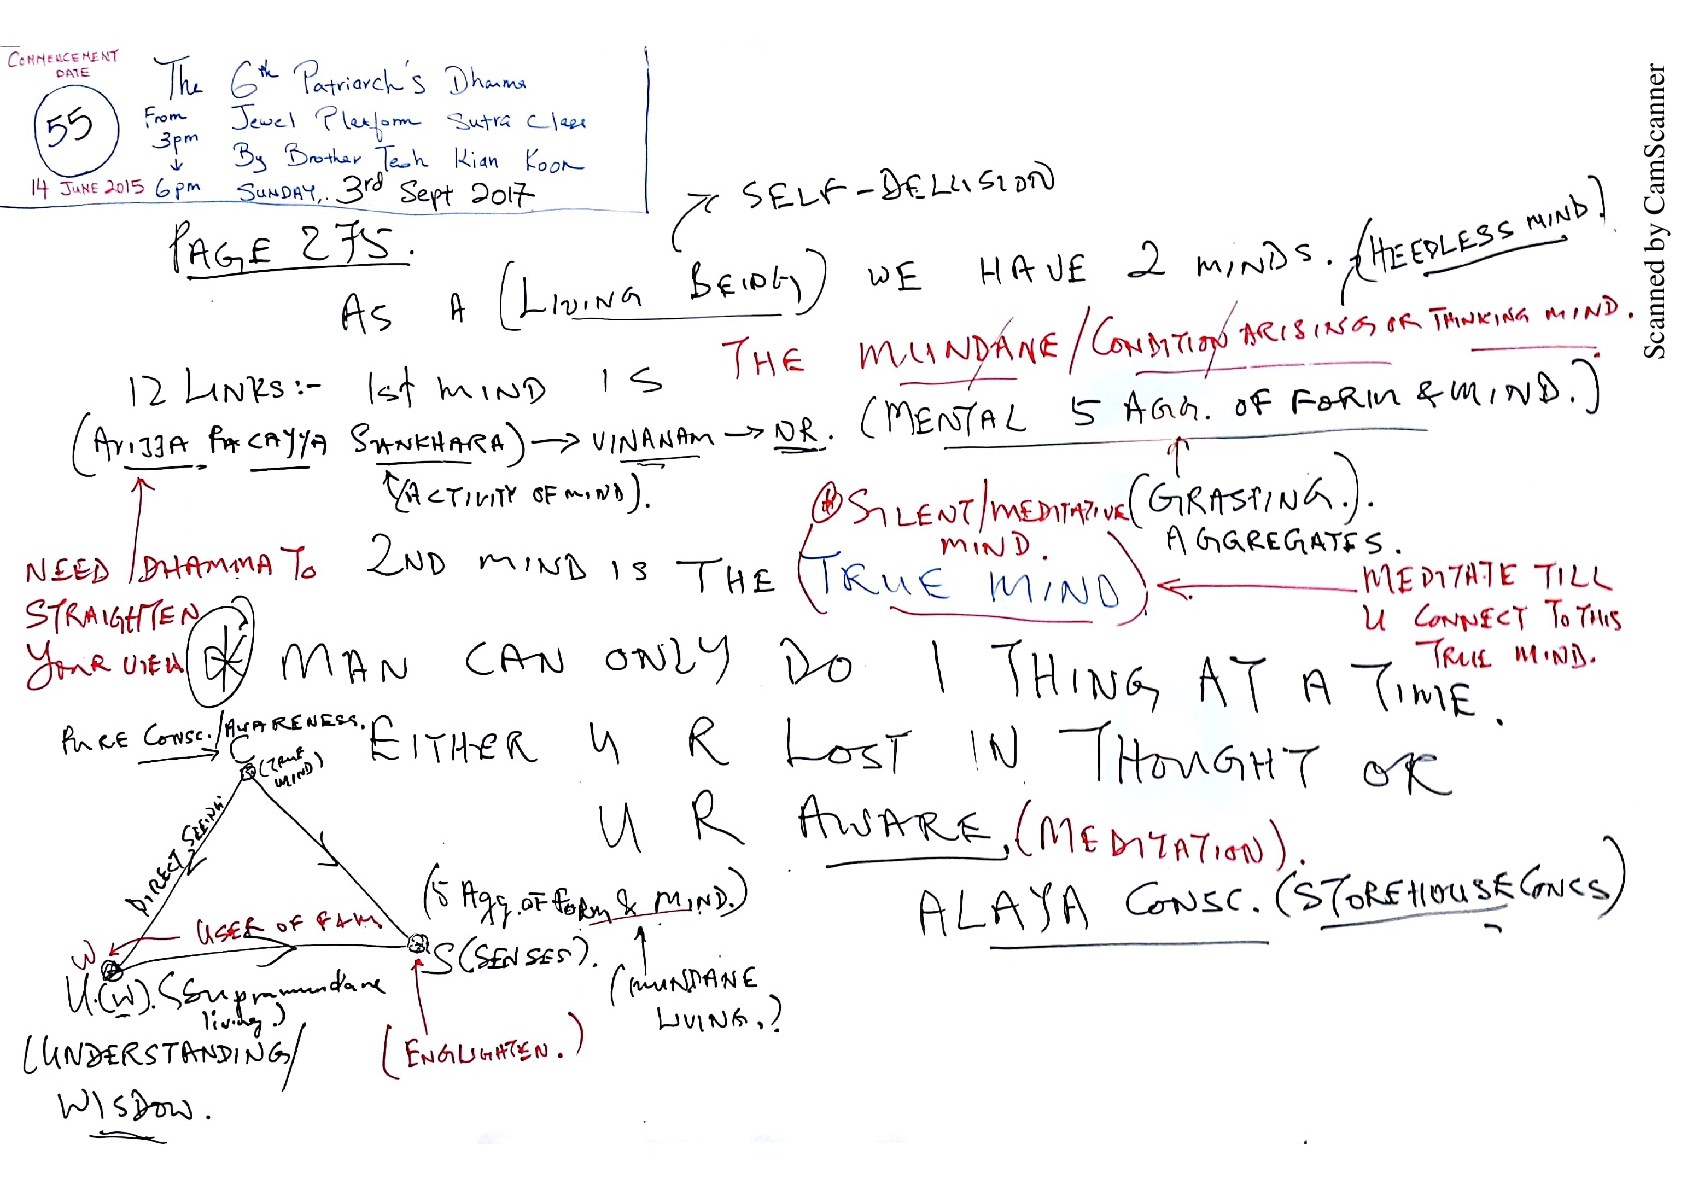 COMMENCEMENT DATE
55
14 JUNE 2015
The 6th Patriarch's Dharma
From 3pm ↓ 6pm
Jewel Platform Sutra Class
By Brother Teoh Kian Koon
SUNDAY,. 3rd Sept 2017
PAGE 275.
SELF-DELUSION
AS A (LIVING BEING) WE HAVE 2 MINDS. (HEEDLESS MIND)
12 LINKS:- 1st MIND IS THE MUNDANE/CONDITION ARISING OR THINKING MIND.
(AVIJJA PACAYYA SANKHARA) → VINANAM → NR. (MENTAL 5 AGG. OF FORM & MIND.)
(ACTIVITY OF MIND).
(GRASPING.).
AGGREGATES.
SILENT/MEDITATIVE
MIND.
2ND MIND IS THE (TRUE MIND)
MEDITATE TILL
U CONNECT TO THIS
TRUE MIND.
NEED DHAMMA TO
STRAIGHTEN
YOUR VIEW
MAN CAN ONLY DO 1 THING AT A TIME.
EITHER U R LOST IN THOUGHT OR
U R AWARE, (MEDITATION).
ALAYA CONSC. (STOREHOUSE CONCS)
PURE CONSC./AWARENESS.
C
(TRUE MIND)
DIRECT SEEING
USER OF F & M
W
(5 Agg. OF FORM & MIND.)
S (SENSES).
(MUNDANE
LIVING.)
U.(W). (Supramundane
living.)
(UNDERSTANDING/
WISDOW.
(ENGLIGHTEN.)
Scanned by CamScanner